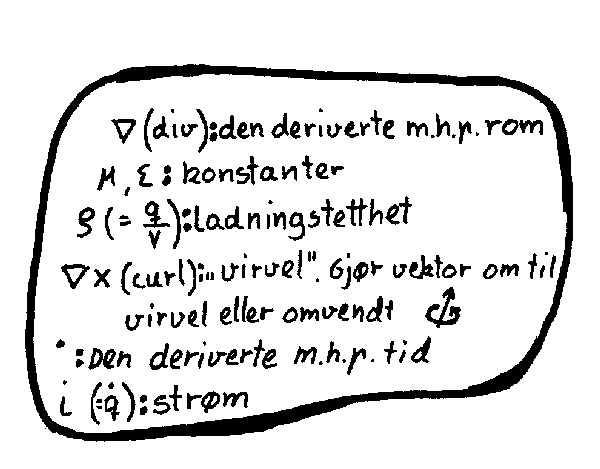 ∇ (div): den deriverte m.h.p. rom
μ, ε: konstanter
ρ (= q/V): ladningstetthet
∇× (curl): „virvel". Gjør vektor om til
virvel eller omvendt
˙: Den deriverte m.h.p. tid
i (=q̇): strøm